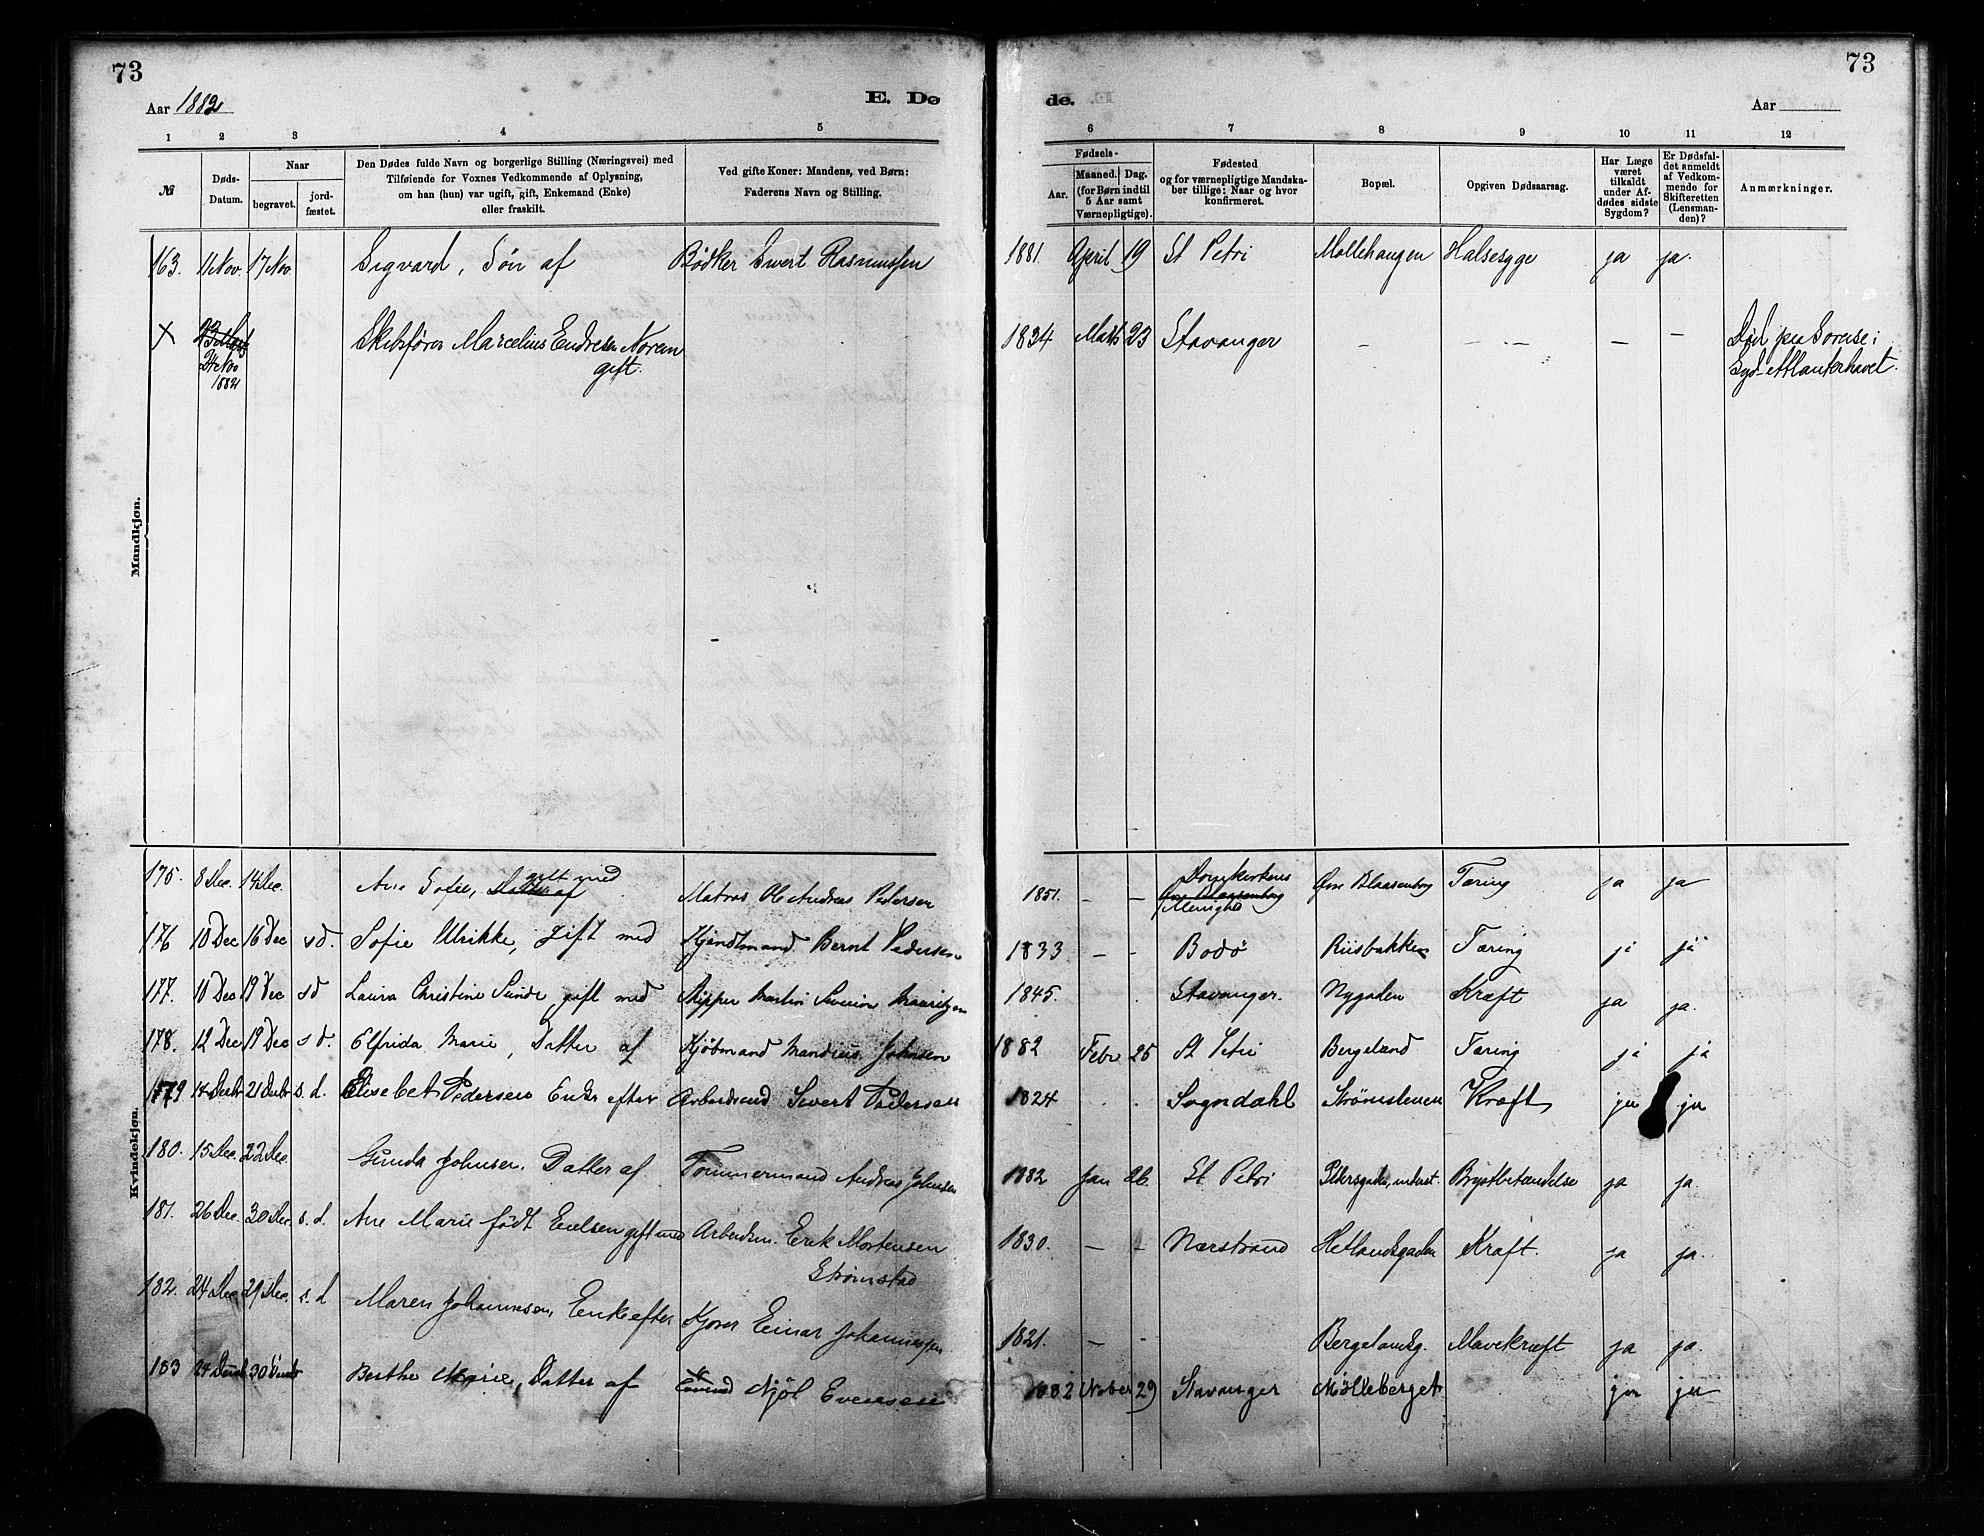 73
73
Aar 1882
E. Dø
de.
Aar
1 2 3 4 5
6 7 8 9 10 11 12
№
Døds-
Datum.
Naar
begravet.
jord-
fæstet.
Den Dødes fulde Navn og borgerlige Stilling (Næringsvei) med
Tilføiende for Voxnes Vedkommende af Oplysning,
om han (hun) var ugift, gift, Enkemand (Enke)
eller fraskilt.
Ved gifte Koner: Mandens, ved Børn:
Faderens Navn og Stilling.
Fødsels-
Aar.
Maaned.
Dag.
(for Børn indtil
5 Aar samt
Værnepligtige).
Fødested
og for værnepligtige Mandska-
ber tillige: Naar og hvor
konfirmeret.
Bopæl.
Opgiven Dødsaarsag.
Har Læge
været
tilkaldt
under Af-
dødes sidste
Sygdom?
Er Dødsfal-
det anmeldt
af Vedkom-
mende for
Skifteretten
(Lensman-
den)?
Anmærkninger.
Mandkjøn.
163. 11 Nov. 17 Nov. Sigvard, Søn af Bødker Sivert Rasmussen 1881. April 19 St Petri Møllehaugen Halsesyge ja ja.
× 24 Nov 1882 Skibsfører Marcelius Endresen Noreen 1834 Marts 23 Stavanger – – – – – Død paa Soreise i
gift. Syd-Atlanterhavet.
Kvindekjøn.
175. 8 Dec. 14 Dec. Ane Sofie, Datter af gift med Matros Ole Andreas Pedersen 1851. – – Domkirkens Menighed Øvre Blaasenborg Tæring ja ja
176 10 Dec 16 Dec sd. Sofie Ulrikke, gift med Kjendtmand Bernt Pedersen 1833 – – Bodö Riisbakken Tæring ja ja
177. 10 Dec 19 Dec sd Laura Christine Sunde gift med Skipper Martin Severin Mauritzen 1845. Stavanger. Nygaden Kræft ja ja.
178. 12 Dec 19 Dec sd. Elfrida Marie, Datter af Kjøbmand Mandius Johnsen 1882 Febr 25 St Petri Bergeland Tæring ja ja
179 14 Decbr 21 Decbr s. d. Elisebet Pedersen Enke efter Arbeidsmd Sivert Pedersen 1824 Sogndahl Strömstenen Kræft ja ja
180. 15 Dec. 22 Dec. Gunda Johnsen. Datter af Tømmermand Andreas Johnsen 1882 Jan 26. St Petri Pedersgaden, nederst. Brystbetændelse ja ja.
181. 26 Dec. 30 Dec. s. d. Ane Marie født Eielsen gift med Arbeidsm. Erik Mortensen 1830. – – Nærstrand Hetlandsgaden Kræft. ja ja.
Strømstad
182. 24 Dec 29 Dec. s. d Maren Johannesen, Enke efter Kjører Einar Johannessen 1821. – – Bergelandsg. Mavekræft ja ja.
183 24 Decbr 30 Decbr Berthe Marie, Datter af Njöl Evensen 1882 Nober 29 Stavanger Mölleberget ja ja